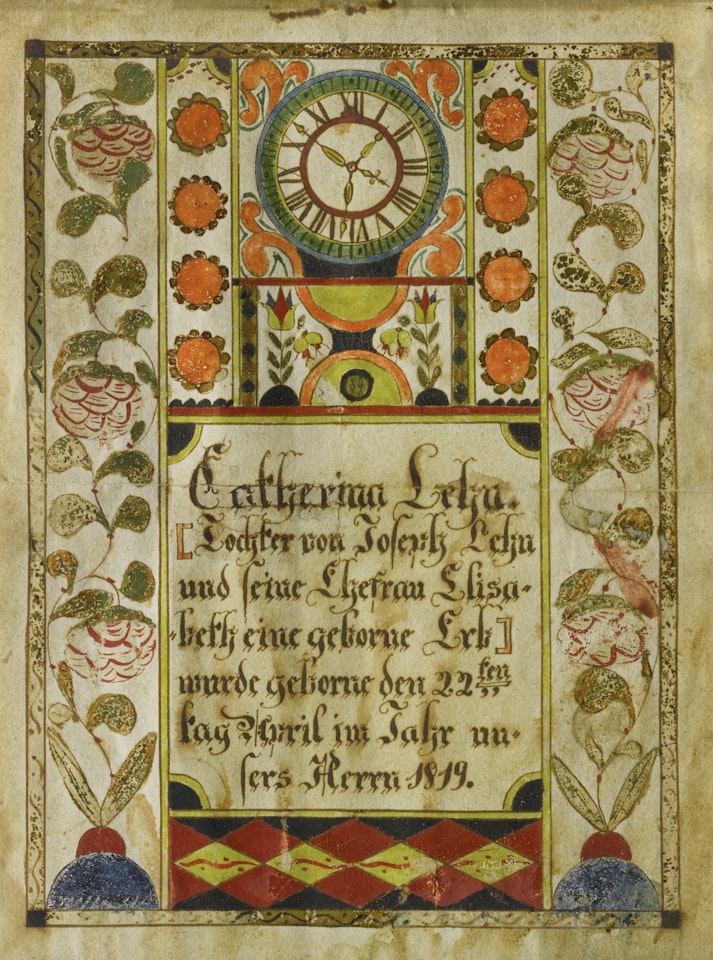 XII
Catherina Lehn.
[Tochter von Joseph Lehn
und seine Ehefrau Elisa-
-beth eine geborne Erb]
wurde geborne den 22ten
tag April im Jahr un-
sers Herrn 1819.